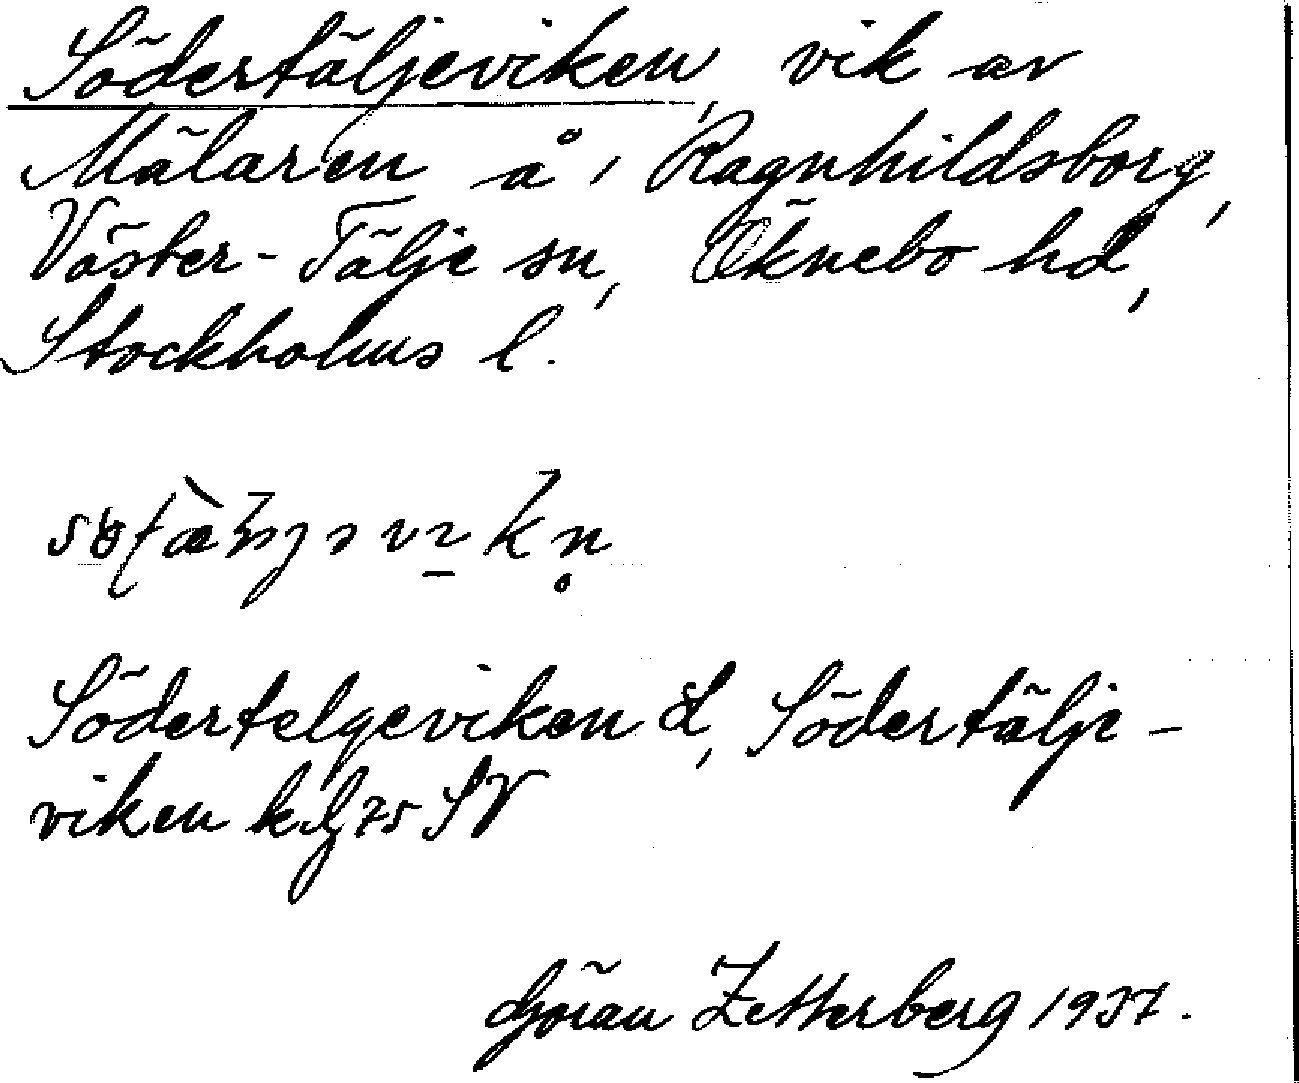 Södertäljeviken, vik av
Mälaren å, Ragnhildsborg,
Väster-Tälje sn, Öknebo hd,
Stockholms l.
Södertelgeviken L, Södertälje-
viken kfg 75 SV
Göran Zetterberg 1937.